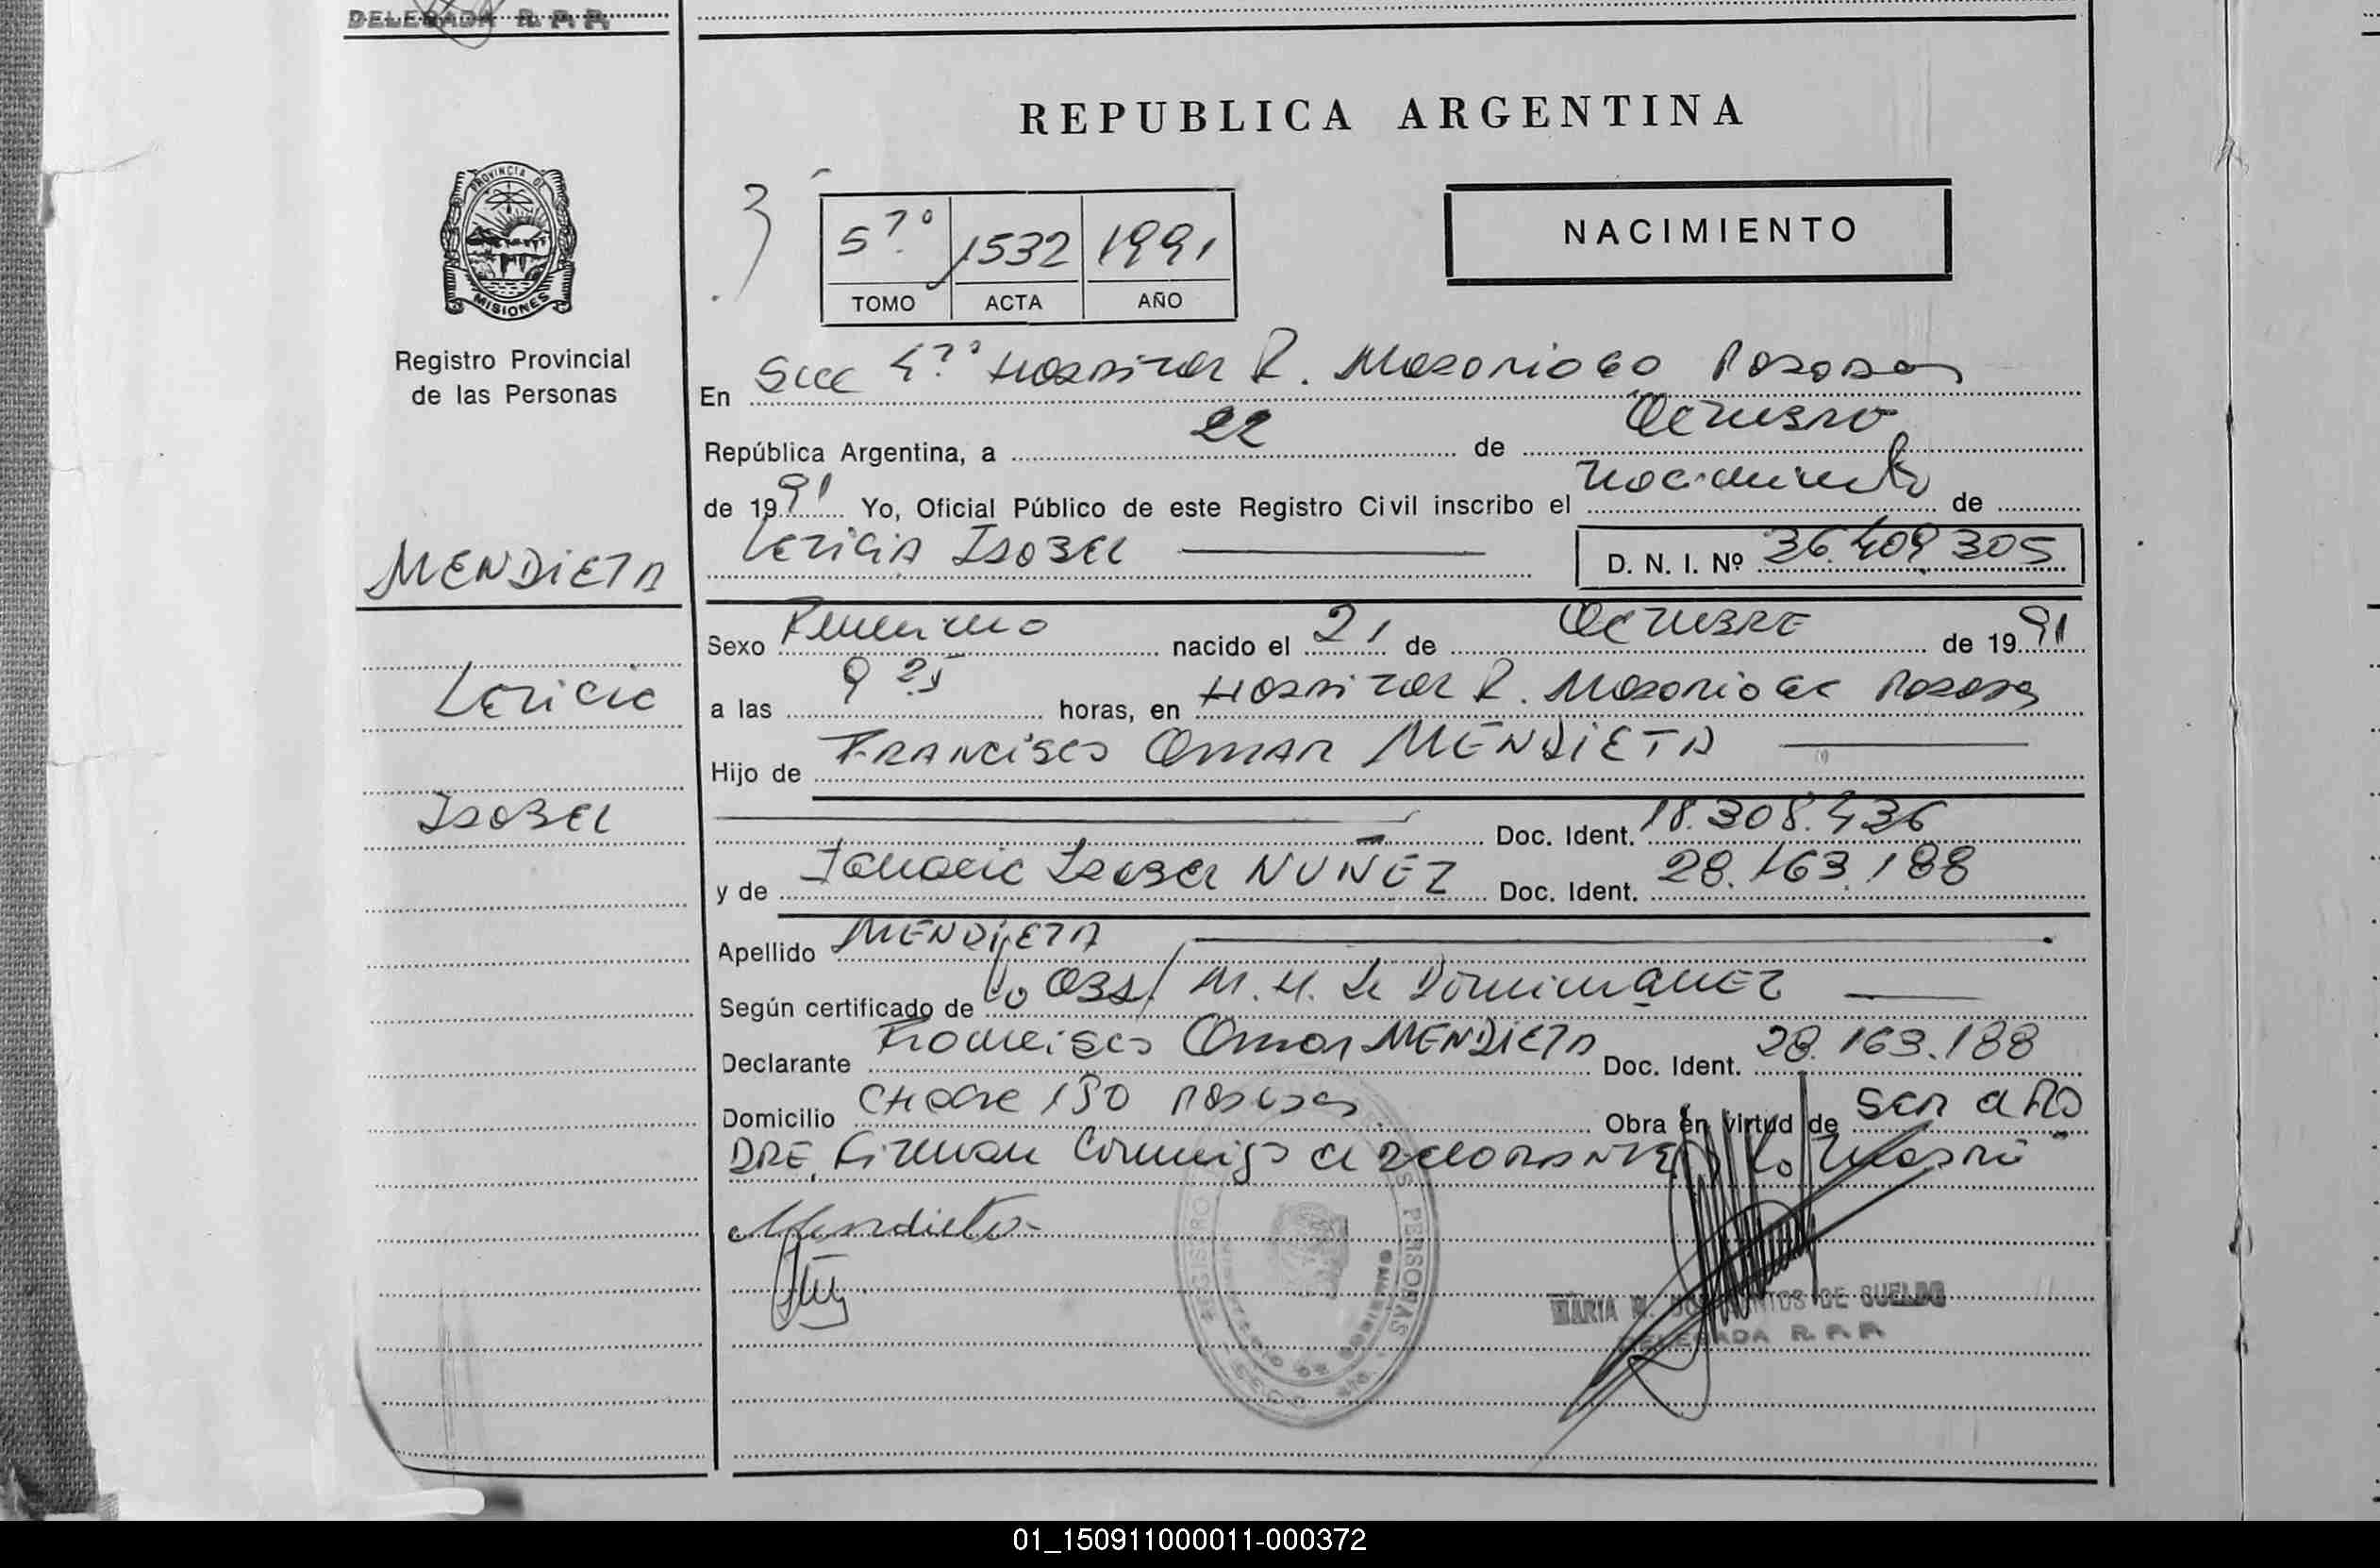 DELEGADA R. P. P.
REPUBLICA ARGENTINA
PROVINCIA DE
MISIONES
Registro Provincial
de las Personas
5?º 1532 1991
TOMO ACTA AÑO
NACIMIENTO
En Secc 4?º Hospital R. Madariaga Posadas
República Argentina, a 22 de Octubre
de 1991 Yo, Oficial Público de este Registro Civil inscribo el nacimiento de
Leticia Isabel
D. N. I. Nº 36.409.305
MENDIETA
Leticia
Isabel
Sexo Femenino nacido el 21 de OCTUBRE de 1991
a las 9 25 horas, en Hospital R. Madariaga Posadas
Hijo de FRANCISCO OMAR MENDIETA
Doc. Ident. 18.308.436
y de Isabel NUÑEZ Doc. Ident. 28.163.188
Apellido MENDIETA
Según certificado de la Obst/ M. H. de DominguEZ
Declarante Francisco Omar MENDIETA Doc. Ident. 28.163.188
Domicilio Chacra 150 Posadas Obra en virtud de ser el PA
DRE, Firman conmigo el declarante y la Madre
Mendieta
MARIA DE SUELDO
DELEGADA R. P. P.
REGISTRO PERSONAS
01_150911000011-000372